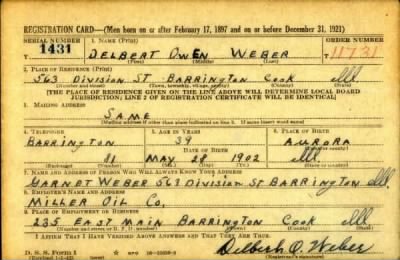 REGISTRATION CARD—(Men born on or after February 17, 1897 and on or before December 31, 1921)
SERIAL NUMBER 1. NAME (Print) ORDER NUMBER
1431 DELBERT OWEN WEBER 11731
(First) (Middle) (Last)
2. PLACE OF RESIDENCE (Print)
563 DIVISION ST BARRINGTON COOK Ill
(Number and street) (Town, township, village, or city) (County) (State)
[THE PLACE OF RESIDENCE GIVEN ON THE LINE ABOVE WILL DETERMINE LOCAL BOARD
JURISDICTION; LINE 2 OF REGISTRATION CERTIFICATE WILL BE IDENTICAL]
3. MAILING ADDRESS
SAME
(Mailing address if other than place indicated on line 2. If same insert word same)
4. TELEPHONE 5. AGE IN YEARS 6. PLACE OF BIRTH
BARRINGTON 39 AURORA
DATE OF BIRTH (Town or county)
81 MAY 28 1902 Ill.
(Exchange) (Number) (Mo.) (Day) (Yr.) (State or country)
7. NAME AND ADDRESS OF PERSON WHO WILL ALWAYS KNOW YOUR ADDRESS
GARNET WEBER 563 DIVISION ST BARRINGTON Ill
8. EMPLOYER'S NAME AND ADDRESS
MILLER OIL CO,
9. PLACE OF EMPLOYMENT OR BUSINESS
235 EAST MAIN BARRINGTON COOK Ill
(Number and street or R. F. D. number) (Town) (County) (State)
I AFFIRM THAT I HAVE VERIFIED ABOVE ANSWERS AND THAT THEY ARE TRUE.
D. S. S. Form 1 Delbert O. Weber